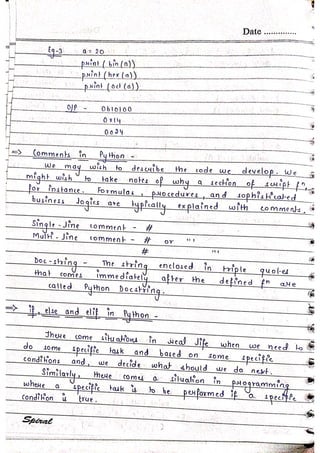 Date ..............
Eg-3 a = 20
print ( bin (a))
print ( hex (a))
print ( oct (a))
O/P - 0b10100
0x14
0o24
=> Comments in Python -
We may wish to describe the code we develop. We
might wish to take notes of why a section of script fn
for instance. Formulas, procedures, and sophisticated
business logics are typically explained with comments.
Single-line comment - #
Multi-line comment - # or '''
# '''
Doc-string - The string enclosed in triple quotes
that comes immediately after the defined fn are
called Python Docstring.
=> if, else and elif in Python -
There come situations in real life when we need to
do some specific task and based on some specific
conditions and, we decide what should we do next.
Similarly, there comes a situation in programming
where a specific task is to be performed if a specific
condition is true.
Spiral